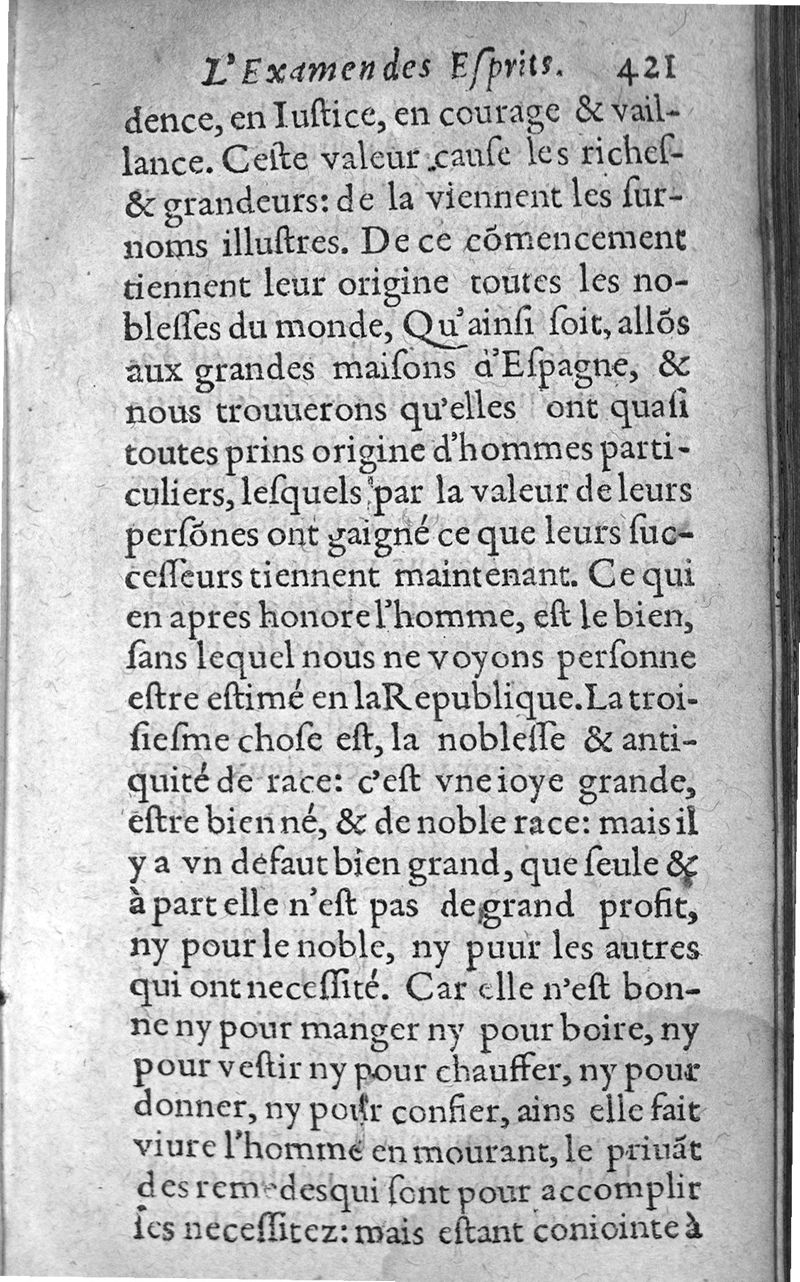 L'Examen des Eſprits. 421
dence, en Iuſtice, en courage & vail-
lance. Ceſte valeur cauſe les richeſ-
& grandeurs: de la viennent les ſur-
noms illuſtres. De ce cõmencement
tiennent leur origine toutes les no-
bleſſes du monde, Qu'ainſi ſoit, allõs
aux grandes maiſons d'Eſpagne, &
nous trouuerons qu'elles ont quaſi
toutes prins origine d'hommes parti-
culiers, leſquels par la valeur de leurs
perſõnes ont gaigné ce que leurs ſuc-
ceſſeurs tiennent maintenant. Ce qui
en apres honore l'homme, eſt le bien,
ſans lequel nous ne voyons perſonne
eſtre eſtimé en la Republique. La troi-
ſieſme choſe eſt, la nobleſſe & anti-
quité de race: c'eſt vne ioye grande,
eſtre bien né, & de noble race: mais il
y a vn defaut bien grand, que ſeule &
à part elle n'eſt pas de grand profit,
ny pour le noble, ny puur les autres
qui ont neceſſité. Car elle n'eſt bon-
ne ny pour manger ny pour boire, ny
pour veſtir ny pour chauffer, ny pour
donner, ny pour confier, ains elle fait
viure l'homme en mourant, le priuãt
des remedes qui ſont pour accomplir
ſes neceſſitez: mais eſtant coniointe à